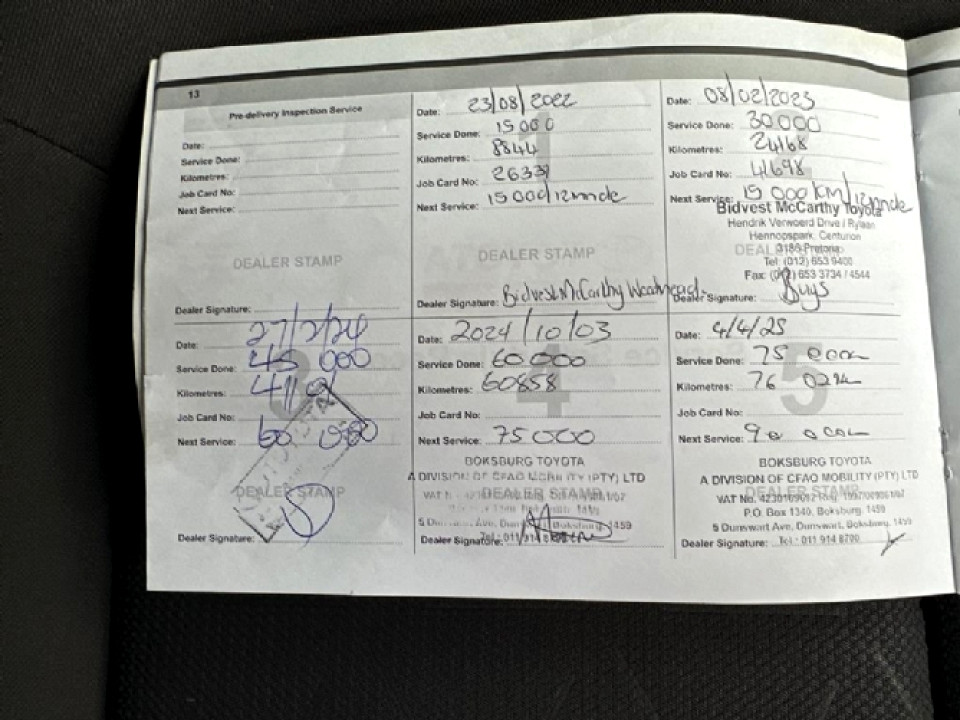 13
Pre-delivery Inspection Service
Date:
Service Done:
Kilometres:
Job Card No:
Next Service:
DEALER STAMP
Dealer Signature:
1
Date: 23/08/2022
Service Done: 15 000
Kilometres: 8844
Job Card No: 26339
Next Service: 15 000/12mnde
DEALER STAMP
Dealer Signature: Bidvest McCarthy
Date: 08/02/2023
Service Done: 30.000
Kilometres: 24168
Job Card No: 41698
Next Service: 15 000 KM/12mnde
Bidvest McCarthy Toyota
Hendrik Verwoerd Drive /
Hennopspark, Centurion
DEALER
Pretoria
Tel: (012) 653 9400
Fax: (012) 653 3734 / 4544
Dealer Signature: Buys
3
Date: 27/2/24
Service Done: 45 000
Kilometres:
Job Card No:
Next Service: 60 000
DEALER STAMP
Dealer Signature:
4
Date: 2024/10/03
Service Done: 60.000
Kilometres: 60858
Job Card No:
Next Service: 75000
BOKSBURG TOYOTA
A DIVISION OF CFAO MOBILITY (PTY) LTD
DEALER STAMP
Boksburg 1459
Dealer Signature:
5
Date: 4/4/25
Service Done: 75 000k
Kilometres: 76
Job Card No:
Next Service: 90 000k
BOKSBURG TOYOTA
A DIVISION OF CFAO MOBILITY (PTY) LTD
DEALER STAMP
VAT No.
P.O. Box 1340, Boksburg. 1459
5 Dunswart Ave, Dunswart, Boksburg. 1459
Dealer Signature: Tel: 011 914 8700